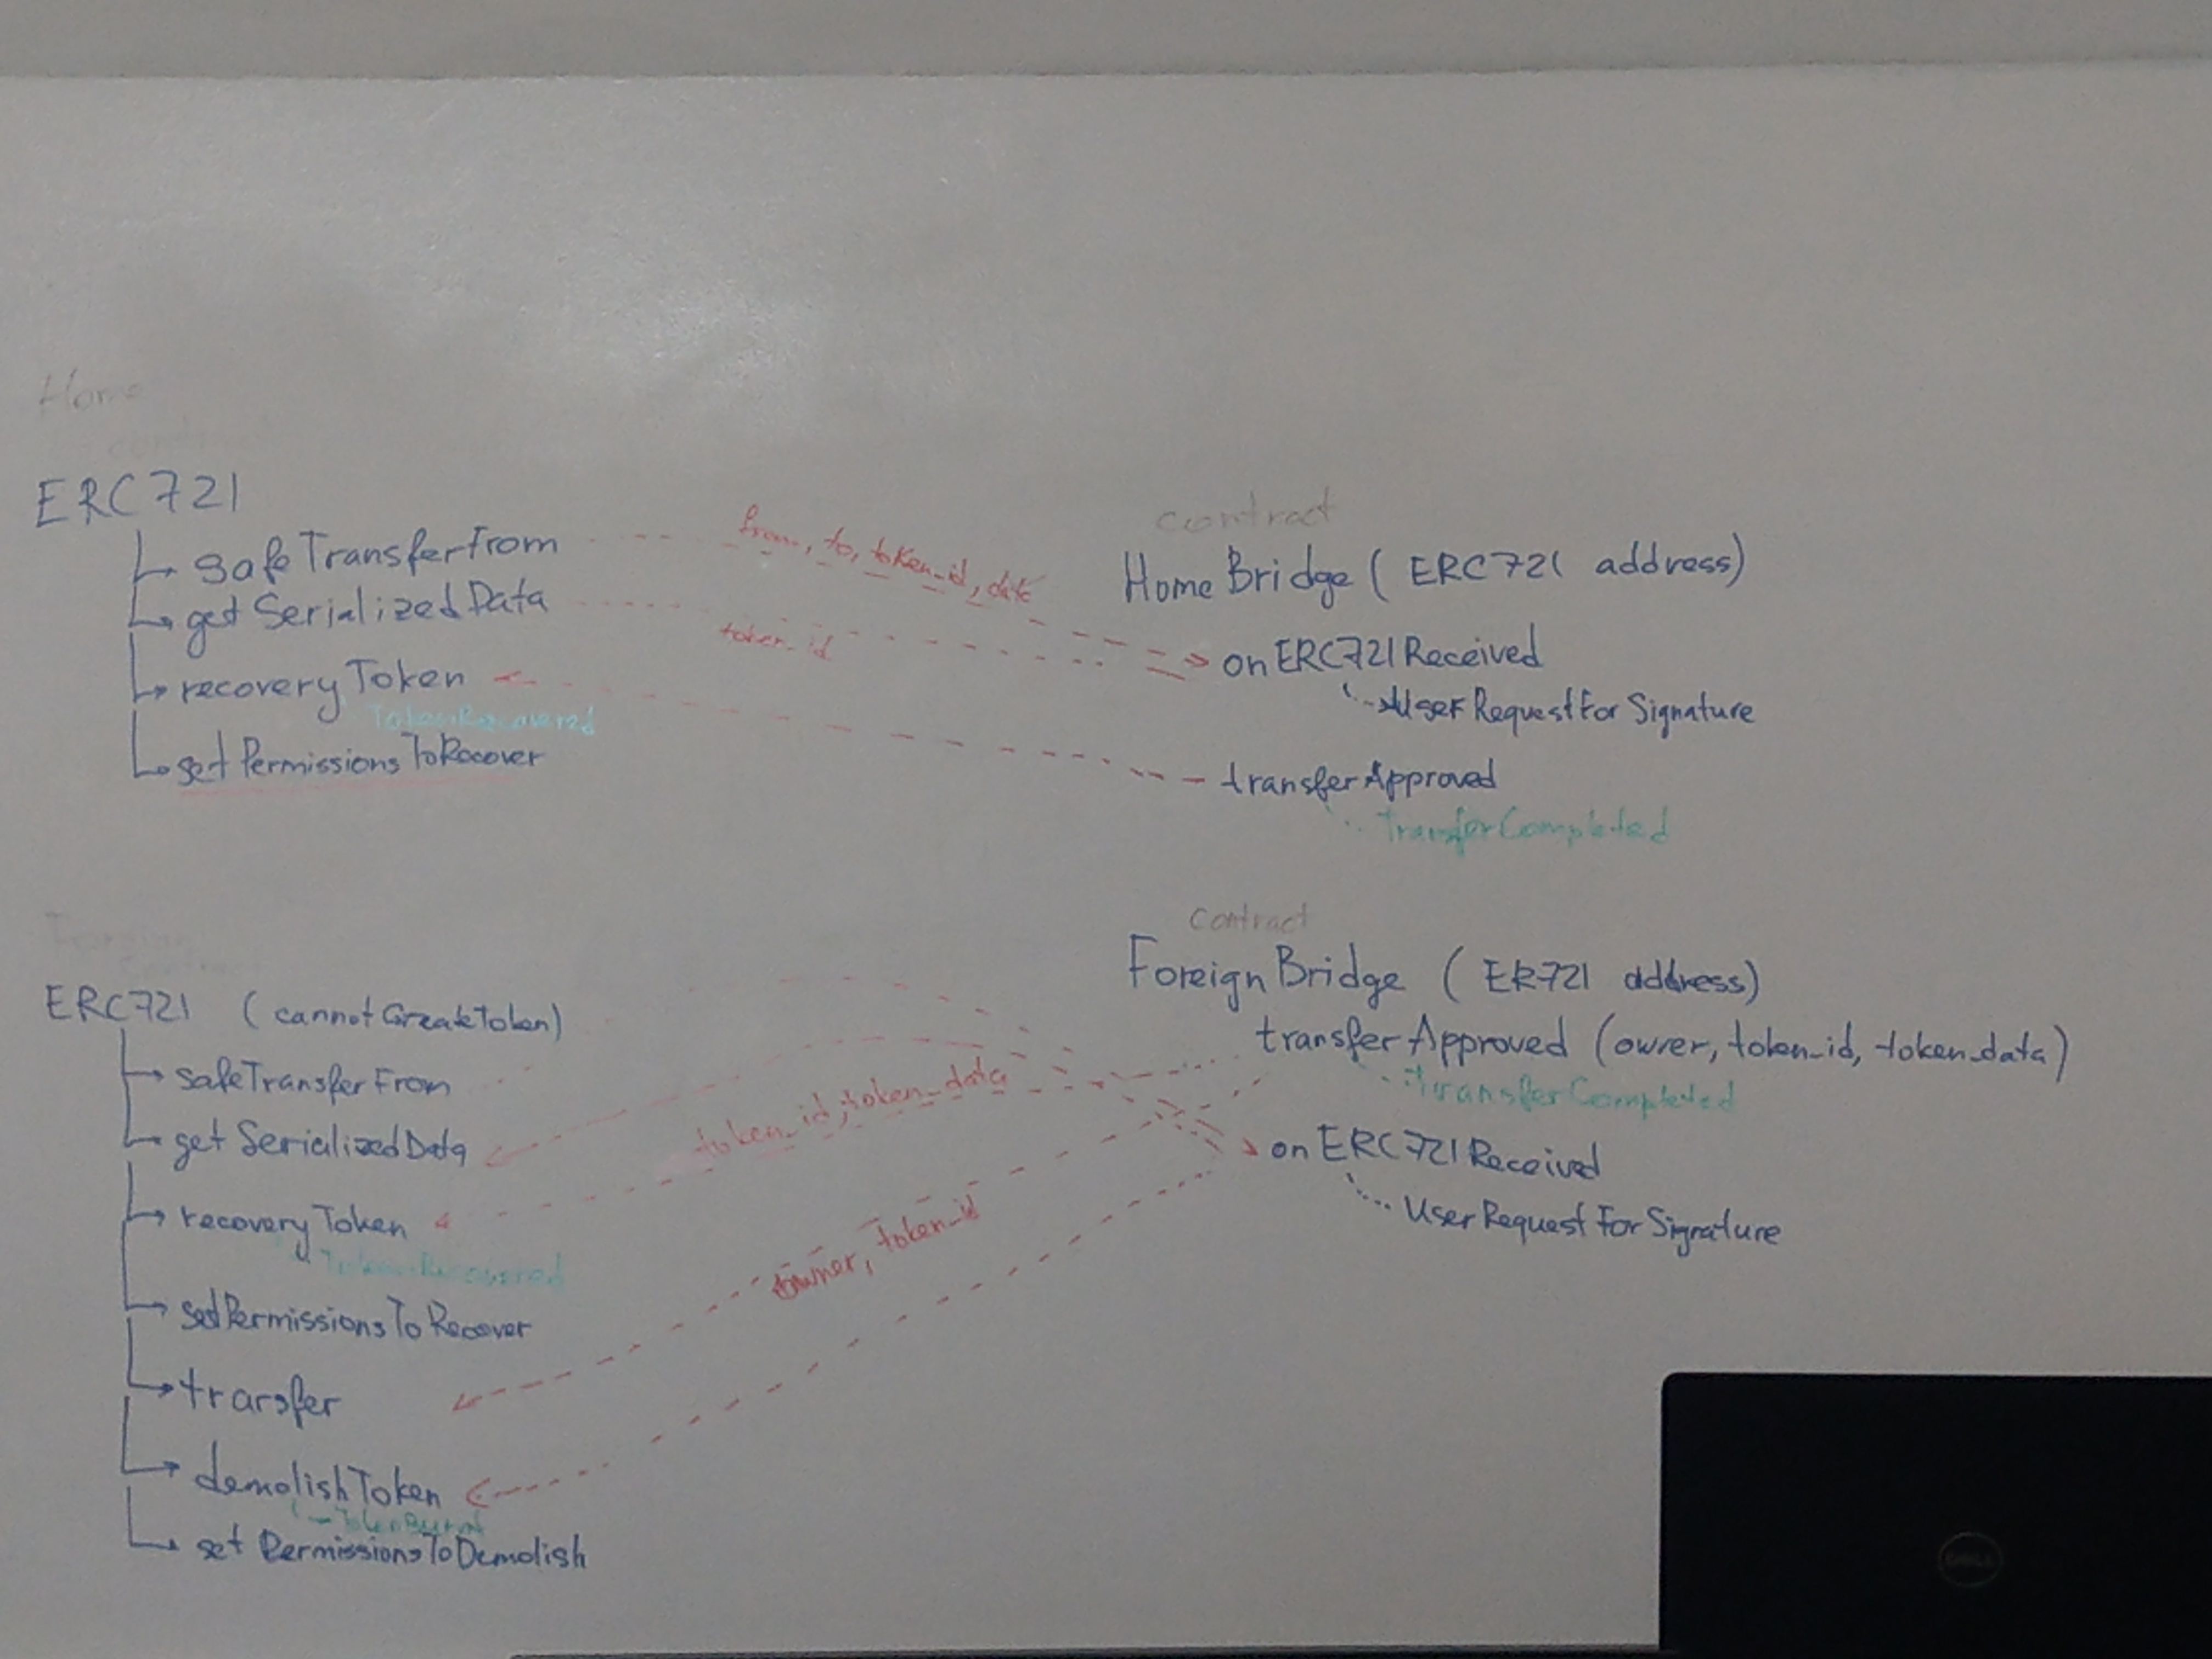 Home
contract
ERC721
safeTransferFrom
getSerializedData
recoveryToken
TokenRecovered
set PermissionsToRecover
from, to, token_id, data
token_id
contract
HomeBridge ( ERC721 address)
onERC721Received
UserRequestForSignature
transferApproved
TransferCompleted
Foreign
contract
ERC721 (cannotCreateToken)
safeTransferFrom
getSerializedData
recoveryToken
TokenRecovered
setPermissionsToRecover
transfer
demolishToken
TokenBurnt
set PermissionsToDemolish
token_id, token_data
owner, token_id
contract
ForeignBridge ( ER721 address)
transferApproved (owner, token_id, token_data)
TransferCompleted
onERC721Received
UserRequestForSignature
DELL